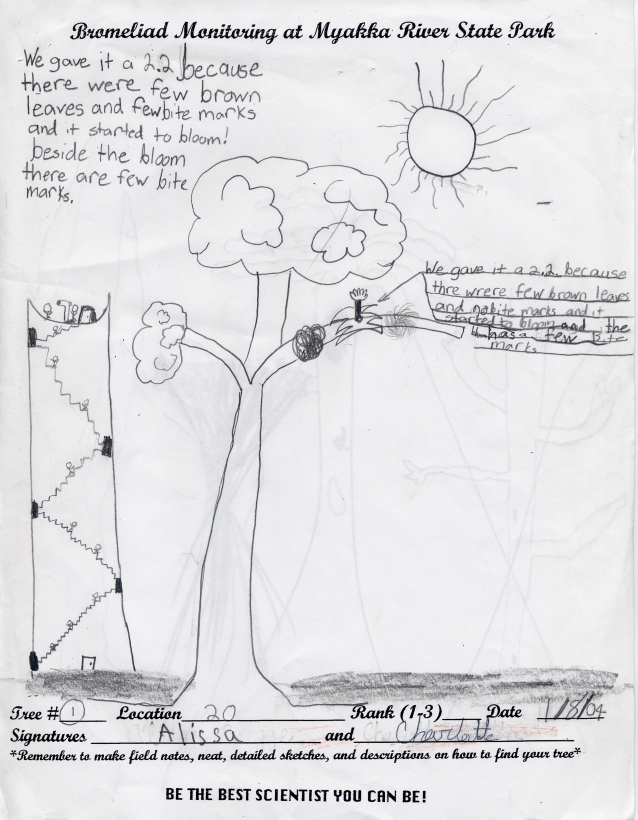 Bromeliad Monitoring at Myakka River State Park
We gave it a 2.2 because
there were few brown
leaves and few bite marks
and it started to bloom!
beside the bloom
there are few bite
marks.
We gave it a 2.2 because
thre wrere few brown leaves
and no bite marks and it
started to bloom and the
has a few Bite
marks
Tree # 1 Location 20 Rank (1-3) Date 1/8/04
Signatures Alissa and Charlotte
*Remember to make field notes, neat, detailed sketches, and descriptions on how to find your tree*
BE THE BEST SCIENTIST YOU CAN BE!